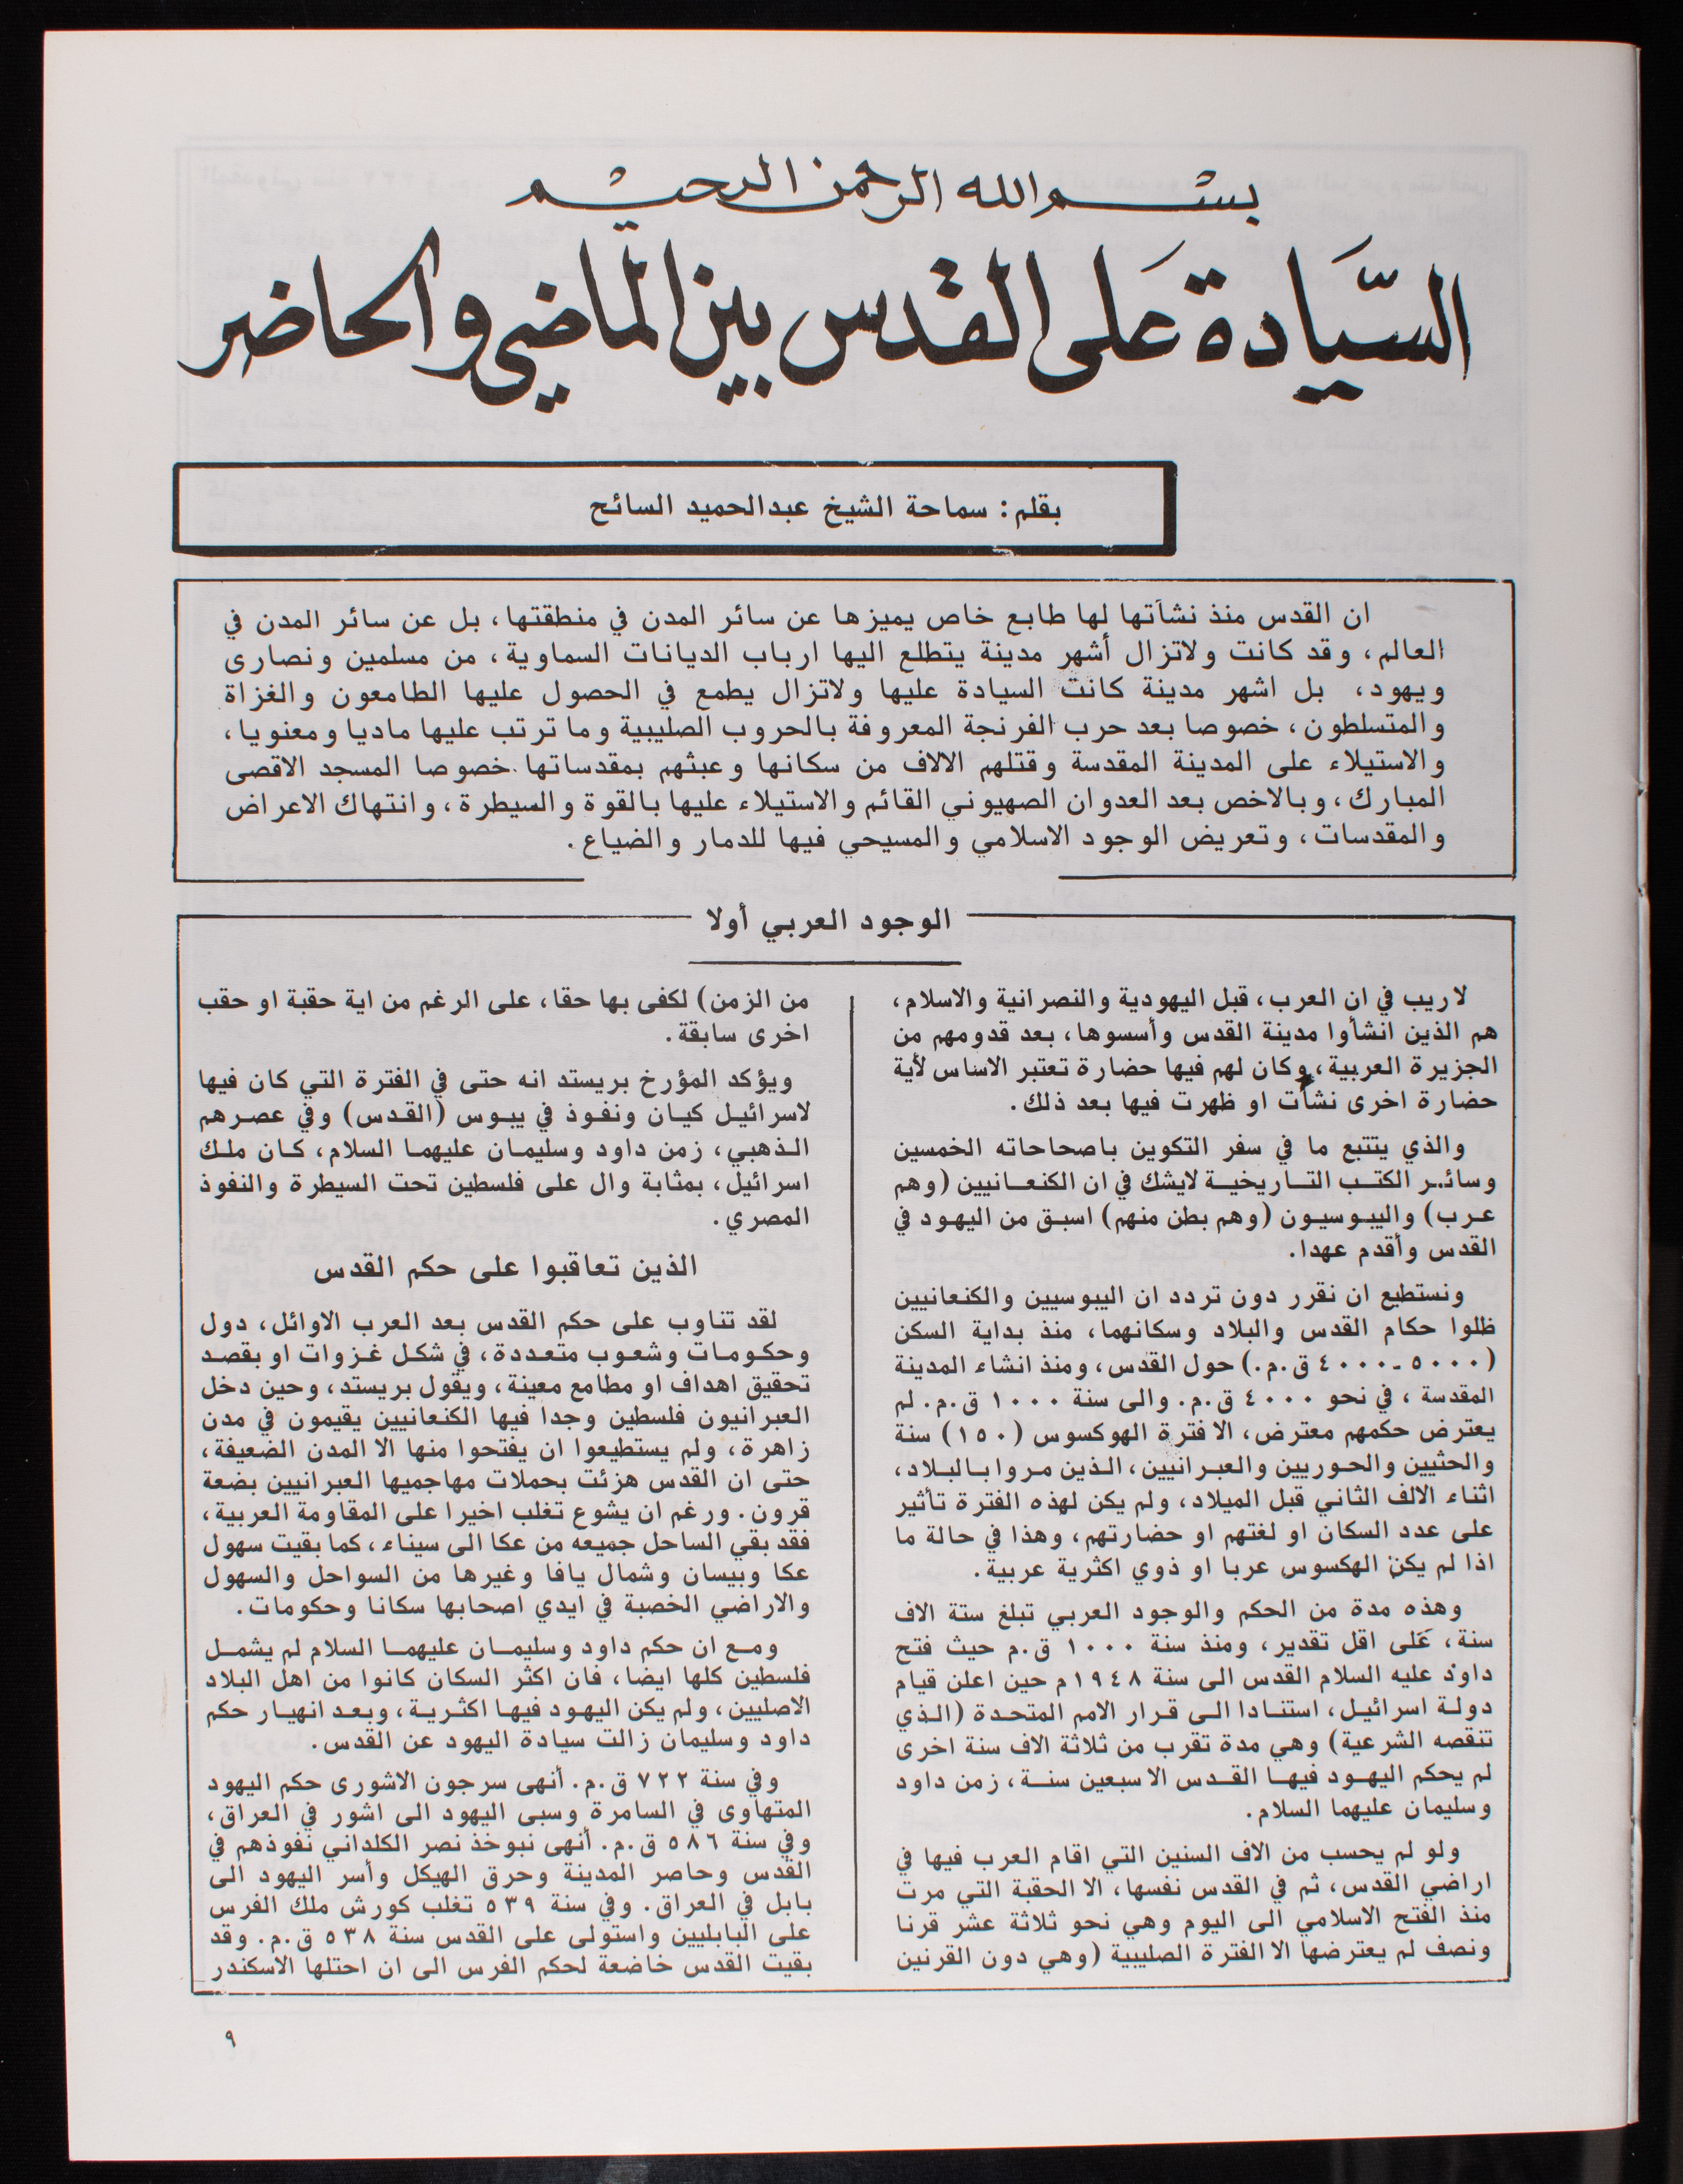 بسم الله الرحمن الرحيم
السيادة على القدس بين الماضي والحاضر
بقلم: سماحة الشيخ عبدالحميد السائح
ان القدس منذ نشأتها لها طابع خاص يميزها عن سائر المدن في منطقتها، بل عن سائر المدن في
العالم، وقد كانت ولاتزال أشهر مدينة يتطلع اليها ارباب الديانات السماوية، من مسلمين ونصارى
ويهود، بل اشهر مدينة كانت السيادة عليها ولاتزال يطمع في الحصول عليها الطامعون والغزاة
والمتسلطون، خصوصا بعد حرب الفرنجة المعروفة بالحروب الصليبية وما ترتب عليها ماديا ومعنويا،
والاستيلاء على المدينة المقدسة وقتلهم الالاف من سكانها وعبثهم بمقدساتها خصوصا المسجد الاقصى
المبارك، وبالاخص بعد العدوان الصهيوني القائم والاستيلاء عليها بالقوة والسيطرة، وانتهاك الاعراض
والمقدسات، وتعريض الوجود الاسلامي والمسيحي فيها للدمار والضياع.
الوجود العربي أولا
لاريب في ان العرب، قبل اليهودية والنصرانية والاسلام،
هم الذين انشأوا مدينة القدس وأسسوها، بعد قدومهم من
الجزيرة العربية، وكان لهم فيها حضارة تعتبر الاساس لأية
حضارة اخرى نشأت او ظهرت فيها بعد ذلك.
والذي يتتبع ما في سفر التكوين باصحاحاته الخمسين
وسائر الكتب التاريخية لايشك في ان الكنعانيين (وهم
عرب) واليبوسيون (وهم بطن منهم) اسبق من اليهود في
القدس وأقدم عهدا.
ونستطيع ان نقرر دون تردد ان اليبوسيين والكنعانيين
ظلوا حكام القدس والبلاد وسكانهما، منذ بداية السكن
(٥٠٠٠-٤٠٠٠ ق.م.) حول القدس، ومنذ انشاء المدينة
المقدسة، في نحو ٤٠٠٠ ق.م. والى سنة ١٠٠٠ ق.م. لم
يعترض حكمهم معترض، الا فترة الهوكسوس (١٥٠) سنة
والحثيين والحوريين والعبرانيين، الذين مروا بالبلاد،
اثناء الالف الثاني قبل الميلاد، ولم يكن لهذه الفترة تأثير
على عدد السكان او لغتهم او حضارتهم، وهذا في حالة ما
اذا لم يكن الهكسوس عربا او ذوي اكثرية عربية.
وهذه مدة من الحكم والوجود العربي تبلغ ستة الاف
سنة، على اقل تقدير، ومنذ سنة ١٠٠٠ ق.م حيث فتح
داود عليه السلام القدس الى سنة ١٩٤٨م حين اعلن قيام
دولة اسرائيل، استنادا الى قرار الامم المتحدة (الذي
تنقصه الشرعية) وهي مدة تقرب من ثلاثة الاف سنة اخرى
لم يحكم اليهود فيها القدس الا سبعين سنة، زمن داود
وسليمان عليهما السلام.
ولو لم يحسب من الاف السنين التي اقام العرب فيها في
اراضي القدس، ثم في القدس نفسها، الا الحقبة التي مرت
منذ الفتح الاسلامي الى اليوم وهي نحو ثلاثة عشر قرنا
ونصف لم يعترضها الا الفترة الصليبية (وهي دون القرنين
من الزمن) لكفى بها حقا، على الرغم من اية حقبة او حقب
اخرى سابقة.
ويؤكد المؤرخ بريستد انه حتى في الفترة التي كان فيها
لاسرائيل كيان ونفوذ في يبوس (القدس) وفي عصرهم
الذهبي، زمن داود وسليمان عليهما السلام، كان ملك
اسرائيل، بمثابة وال على فلسطين تحت السيطرة والنفوذ
المصري.
الذين تعاقبوا على حكم القدس
لقد تناوب على حكم القدس بعد العرب الاوائل، دول
وحكومات وشعوب متعددة، في شكل غزوات او بقصد
تحقيق اهداف او مطامع معينة، ويقول بريستد، وحين دخل
العبرانيون فلسطين وجدا فيها الكنعانيين يقيمون في مدن
زاهرة، ولم يستطيعوا ان يفتحوا منها الا المدن الضعيفة،
حتى ان القدس هزئت بحملات مهاجميها العبرانيين بضعة
قرون. ورغم ان يشوع تغلب اخيرا على المقاومة العربية،
فقد بقي الساحل جميعه من عكا الى سيناء، كما بقيت سهول
عكا وبيسان وشمال يافا وغيرها من السواحل والسهول
والاراضي الخصبة في ايدي اصحابها سكانا وحكومات.
ومع ان حكم داود وسليمان عليهما السلام لم يشمل
فلسطين كلها ايضا، فان اكثر السكان كانوا من اهل البلاد
الاصليين، ولم يكن اليهود فيها اكثرية، وبعد انهيار حكم
داود وسليمان زالت سيادة اليهود عن القدس.
وفي سنة ٧٢٢ ق.م. أنهى سرجون الاشورى حكم اليهود
المتهاوى في السامرة وسبى اليهود الى اشور في العراق،
وفي سنة ٥٨٦ ق.م. أنهى نبوخذ نصر الكلداني نفوذهم في
القدس وحاصر المدينة وحرق الهيكل وأسر اليهود الى
بابل في العراق. وفي سنة ٥٣٩ تغلب كورش ملك الفرس
على البابليين واستولى على القدس سنة ٥٣٨ ق.م. وقد
بقيت القدس خاضعة لحكم الفرس الى ان احتلها الاسكندر
٩